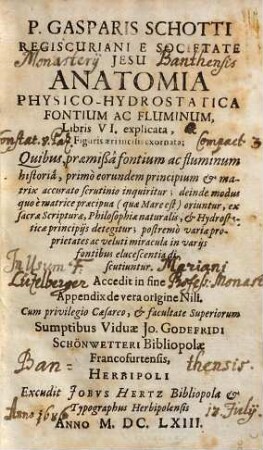 P. GASPARIS SCHOTTI
REGISCURIANI E SOCIETATE
Monasterij JESU Banthensis
ANATOMIA
PHYSICO-HYDROSTATICA
FONTIUM AC FLUMINUM,
Libris VI. explicata, &
Constat. Figuris æri incisis exornata; Compact.
Quibus, præmissâ fontium ac fluminum
historiâ, primò eorundem principium & ma-
trix accurato scrutinio inquiritur; deinde modus
quo è matrice præcipua (quæ Mare est) oriuntur, ex
sacræ Scripturæ, Philosophiæ naturalis, & Hydrost-
aticæ principijs detegitur; postremò varia pro-
prietates ac veluti miracula in varijs
fontibus elucescentia di-
scutiuntur. Mariani
Accedit in fine Profess. Monast
Appendix de vera origine Nili.
Cum privilegio Cæsareo, & facultate Superiorum
Sumptibus Viduæ Jo. GODEFRIDI
SCHÖNWETTERI Bibliopolæ
Ban= Francofurtensis, thensis
HERBIPOLI
Excudit JOBUS HERTZ Bibliopola &
Anno Typographus Herbipolensis July.
ANNO M. DC. LXIII.